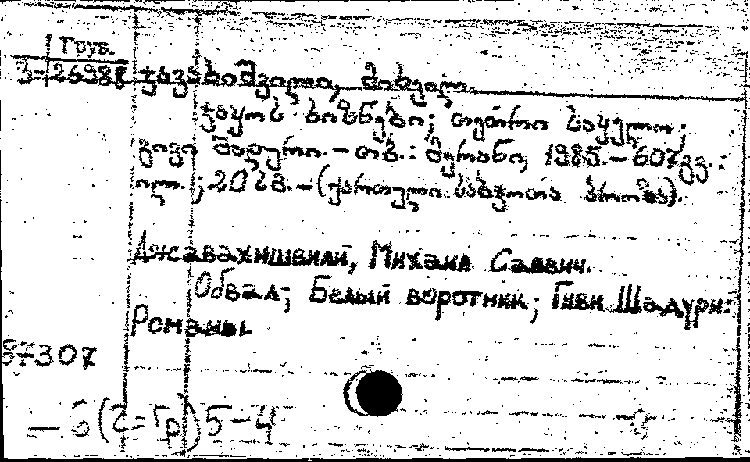 Груз.
3-26988 ჯავახიშვილი, მიხეილ.
ჯაყოს ხიზნები; თეთრი საყელო;
გივი შადური. – თბ.: მერანი, 1985. – 607 გვ.:
ილ.; 20 სმ. – (ქართული საბჭოთა პროზა).
Джавахишвили, Михаил Саввич.
Обвал; Белый воротник; Гиви Шадури:
Романы
87307
– 6 (С=Гр) 5-4